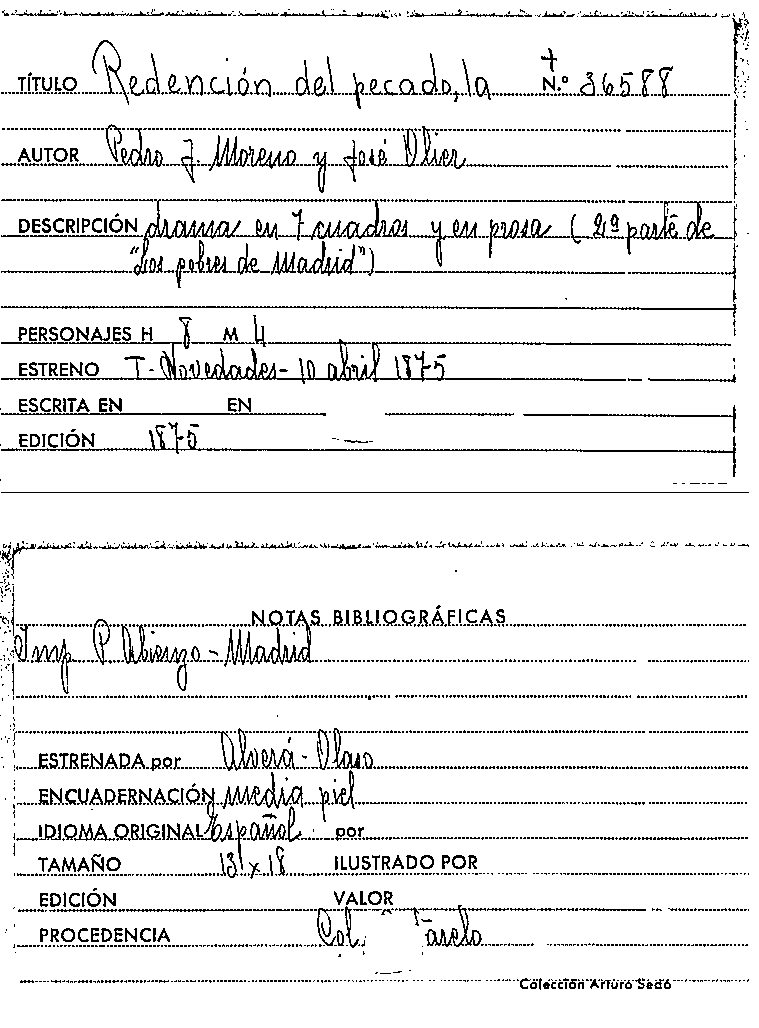 TÍTULO Redención del pecado, la + N.º 36588
AUTOR Pedro J. Moreno y José Olier
DESCRIPCIÓN drama en 7 cuadros y en prosa (2ª parte de
"Los pobres de Madrid")
PERSONAJES H 8 M 4
ESTRENO T. Novedades - 10 abril 1875
ESCRITA EN EN
EDICIÓN 1875
NOTAS BIBLIOGRÁFICAS
Imp P. Abienzo - Madrid
ESTRENADA por Alverá - Olaso
ENCUADERNACIÓN media piel
IDIOMA ORIGINAL Español por
TAMAÑO 13 x 18 ILUSTRADO POR
EDICIÓN VALOR
PROCEDENCIA Col.
Colección Arturo Sedó